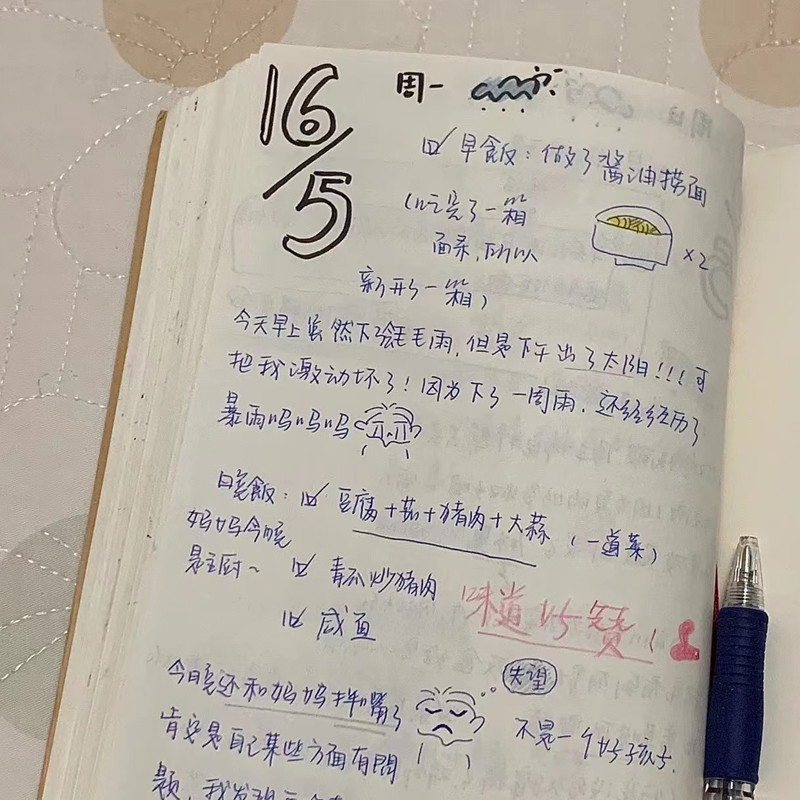 16/5
周一
早飯：做了酱油捞面
(吃完了一箱
面条，所以
新开了一箱)
x2
今天早上虽然下了毛毛雨，但是下午出了太阳!!! 可
把我激动坏了！因为下了一周雨，还经经历了
暴雨呜呜呜
晚飯：豆腐+茄+猪肉+大蒜 (一道菜)
妈妈今晚
是主厨~
青瓜炒猪肉
咸鱼
味道好赞！
今晚还和妈妈拌嘴了
失望
肯定是自己某些方面有問
不是一个好孩子.
题，我发现